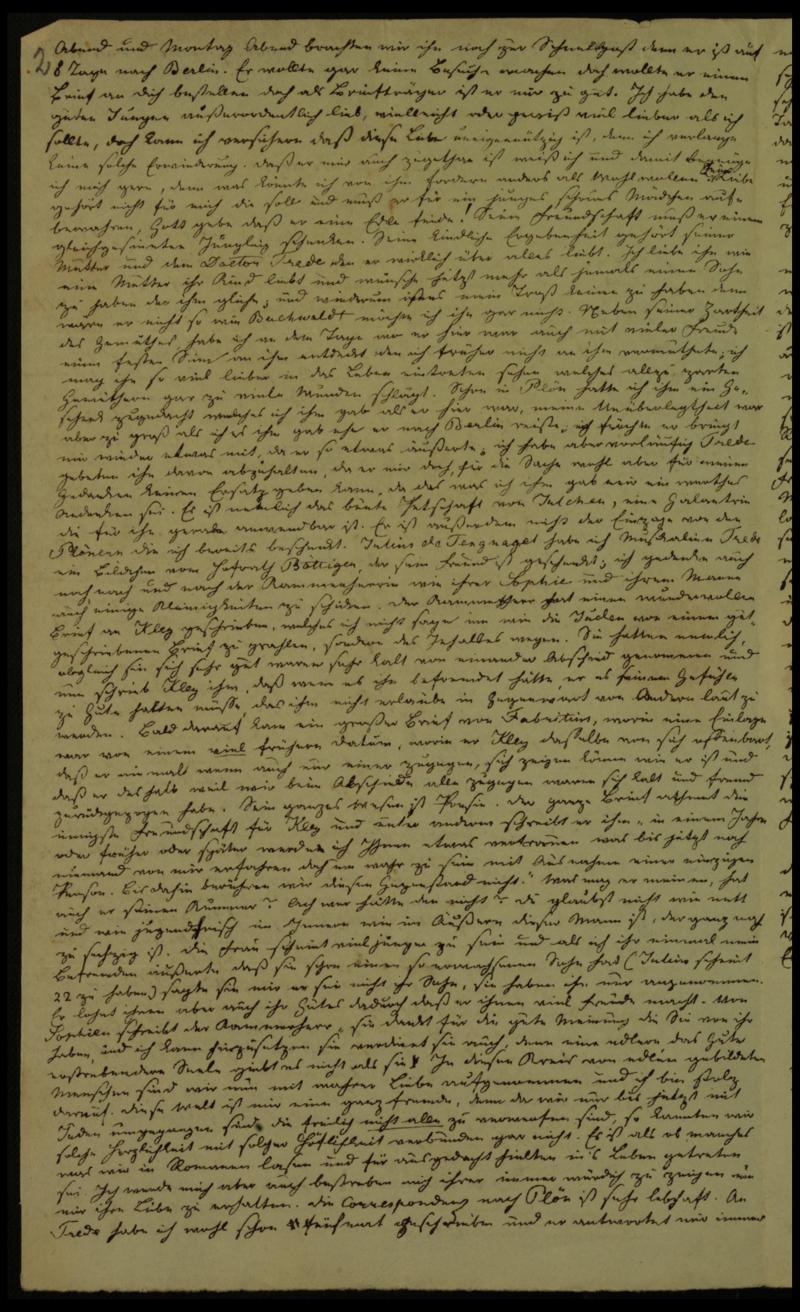 2
Abend und Montag Abend brachten wir ihn noch zur Schnellpost denn er ist auf
8 Tage nach Berlin. Er wollte gar keine Besuche machen doch wollte er einen
Brief an Dich bestellen doch als Briefträger ist er nur zu gut. Ich habe den
guten Jungen außerordentlich lieb, vielleicht oder gewiß viel lieber als ich
sollte, doch kann ich versichern daß diese Liebe uneigennützig ist, denn ich verlange
keine solche Erwiederung. Daß er mir auch zugethan ist weiß ich und damit begnüge
ich mich gern, denn was könnte ich von ihm fordern anders als Wohlwollen. Seine Liebe
gehört nicht für mich die soll und muß er für ein junges schönes Mädchen auf-
bewahren, Gott gebe daß er eine Edle finde! Seine Freundschaft muß er einem
gleichgesinnten Jüngling schenken. Seine kindliche Ergebenheit gehört seiner
Mutter und dem Doctor Trede den er wirklich über alles liebt. Ich liebe ihn wie
eine Mutter ihr Kind liebt und wünsche jetzt mehr als jemals einen Sohn
zu haben der ihm gliche; und wiederum ists mein Trost keinen zu haben denn
wäre er nicht so wie Buchwaldt möchte ich ihn gar nicht. Neben seiner Zartheit
des Gemüthes habe ich an dem Tage wo er hier war auch mit vieler Freude
einen festen Sinn an ihm entdeckt den ich früher nicht an ihm vermuthete; ich
mag ihn so viel lieber in das Leben eintreten sehen welches allzu zarten
Gemüthern gar zu viele Wunden schlägt. Schon in Plön hatte ich ihm ein Ge-
schenk zugedacht welches ich ihm gab als er hier war, meine Unüberlegtheit war
aber zu groß als ich es ihm gab ehe er nach Berlin reiste; ich fürchte er bringt
mir wieder etwas mit, da er so etwas äußerte; ich habe aber vorläufig Trede
gebeten ihn davon abzuhalten, da er mir doch für die Sache wohl aber für meinen
Gedanken keinen Ersatz geben kann, da das was ich ihm gab mir ein werthes
Andenken sei. Es ist nemlich das bunte Petschaft von Julchen, eine Galanterie
die für ihn gerade anwendbar ist. Er ist außerdem nicht der Einzige von den
Plönern die ich bereits beschenkt. Julius de Tengnagel habe ich Musikalien Trede
ein Bildchen vom Hofrath Böttiger, der sein Freund ist geschenkt; ich gedenke auch
noch nach und nach der Kammerherrin wie ihrer Sophie und ihrem Manne
auch einige Kleinigkeiten zu schicken. Der Kammerherr hat einen wundervollen
Brief an Kley geschrieben, welches ich nicht sage um wie die Juden von einem gut
geschriebenen Brief zu prahlen, sondern des Inhaltes wegen. Sie hatten nemlich,
obgleich sie sich sehr gut waren sehr kalt von einander Abschied genommen und
nun schrieb Kley ihm, daß wenn es ihn befremdet hätte, er es seinem Gefühle
zu Gute halten müsse, das ihm nicht erlaube in Gegenwart von Andern laut zu
werden. Bald darauf kam ein großer Brief von Fabritius, worin eine Einlage
war von einem viel frühern Datum, worin er Kley dasselbe von sich offenbart,
daß er niemals wenn auch nur einer zugegen, sich zeigen könne wie er ist und
daß er deshalb weil wir beim Abschiede alle zugegen waren sich kalt und fremd
zurückgezogen habe. Sein ganzes Wesen ist Poesie. Der ganze Brief athmet die
innigste Freundschaft für Kley und unter andern schreibt er ihm „in einem Jahre
oder früher oder später werde ich Ihnen etwas vertrauen was bis jetzt noch
niemand von mir erfahren doch um wahr zu sein mit Ausnahme einer einzigen
Person. Bis dahin berühren wir diesen Gegenstand nicht.“ Was mag er meinen, hat
auch er seinen Kummer? Ach wer hätte den nicht? Du glaubst nicht wie nett
und wie jugendfrisch im Innern wie im Äußern dieser Mann ist, der ganz nah
zu sechszig ist. Die Frau scheint viel jünger zu sein und als ich ihr einmal mein
Befremden äußerte daß sie schon einen so erwachsenen Sohn hat (Julius scheint
22 zu haben) sagte sie mir er sei nicht ihr Sohn, sie haben ihn nur angenommen.
Er lohnt ihnen aber auch ihr Gutes dadurch daß er ihnen viel Freude macht. Von
Sophien schreibt der Kammerherr „sie dankt für die gute Meinung die Sie von ihr
haben, und ich kann hinzusetzen sie verdient sie auch, denn eine edlere das Gute
erstrebendere Seele giebt es nicht als sie“. In diesen Kreis von edlen gebildeten
Menschen sind wir nun mit wahrer Liebe aufgenommen und ich bin stolz
darauf. Diese Welt ist mir eine ganz fremde, denn da wir nur bis jetzt mit
Juden umgegangen sind, die freilich nicht alle zu verwerfen sind, so kannten wir
solche Herzlichkeit mit solcher Höflichkeit verbunden gar nicht. Es ist als ob manches
was wir in Romanen lasen und für ausgedacht hielten in's Leben getreten
sei. Ich werde mich aber auch bestreben mich ihrer immer würdig zu zeigen um
mir ihre Liebe zu erhalten. Die Correspondenz nach Plön ist sehr lebhaft. An
Trede habe ich wohl schon fünfmal geschrieben und er antwortet mir immer